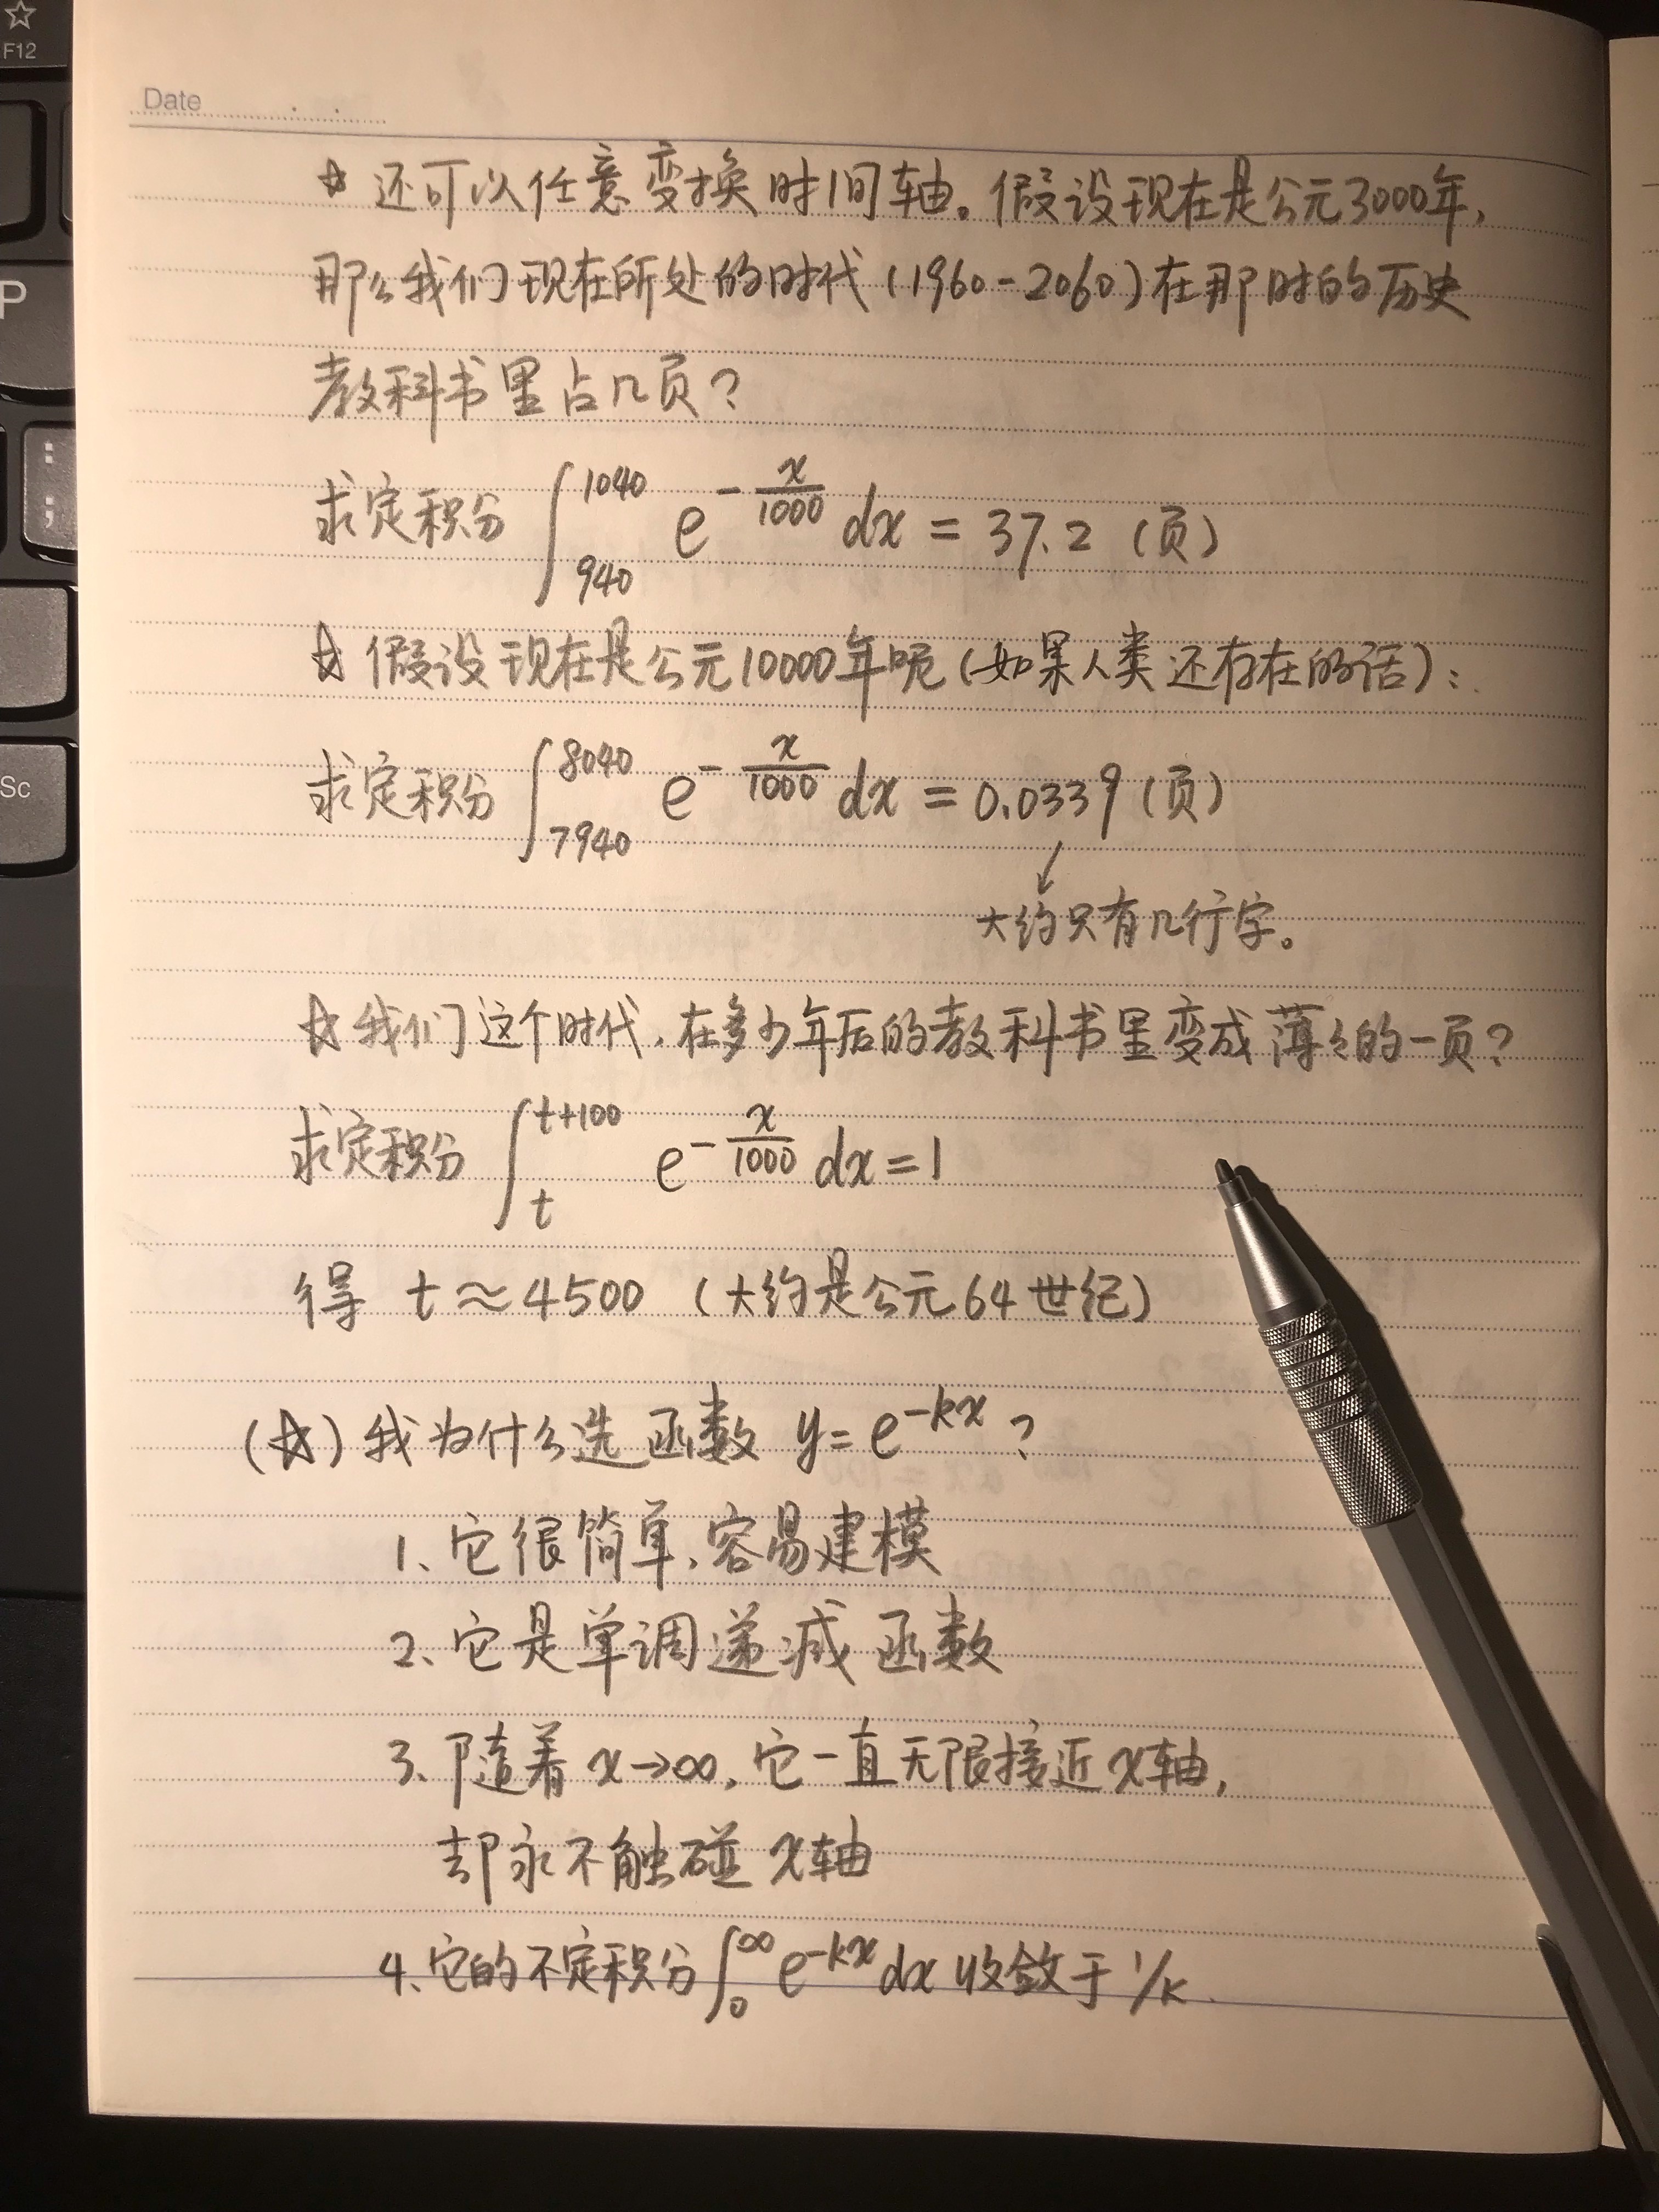 ☆
F12
P
:
;
Sc
Date . .
☆ 还可以任意变换时间轴。假设现在是公元3000年,
那么我们现在所处的时代(1960-2060)在那时的历史
教科书里占几页?
求定积分 ∫₉₄₀¹⁰⁴⁰ e^(-x/1000) dx = 37.2 (页)
☆ 假设现在是公元10000年呢(如果人类还存在的话):
求定积分 ∫₇₉₄₀⁸⁰⁴⁰ e^(-x/1000) dx = 0.0339 (页)
↙
大约只有几行字。
☆ 我们这个时代,在多少年后的教科书里变成薄々的一页?
求定积分 ∫ₜᵗ⁺¹⁰⁰ e^(-x/1000) dx = 1
得 t ≈ 4500 (大约是公元64世纪)
(☆) 我为什么选函数 y = e^(-kx) ?
1、它很简单,容易建模
2、它是单调递减函数
3、随着 x→∞,它一直无限接近 x轴,
却永不触碰 x轴
4、它的不定积分 ∫₀^∞ e^(-kx) dx 收敛于 1/k.